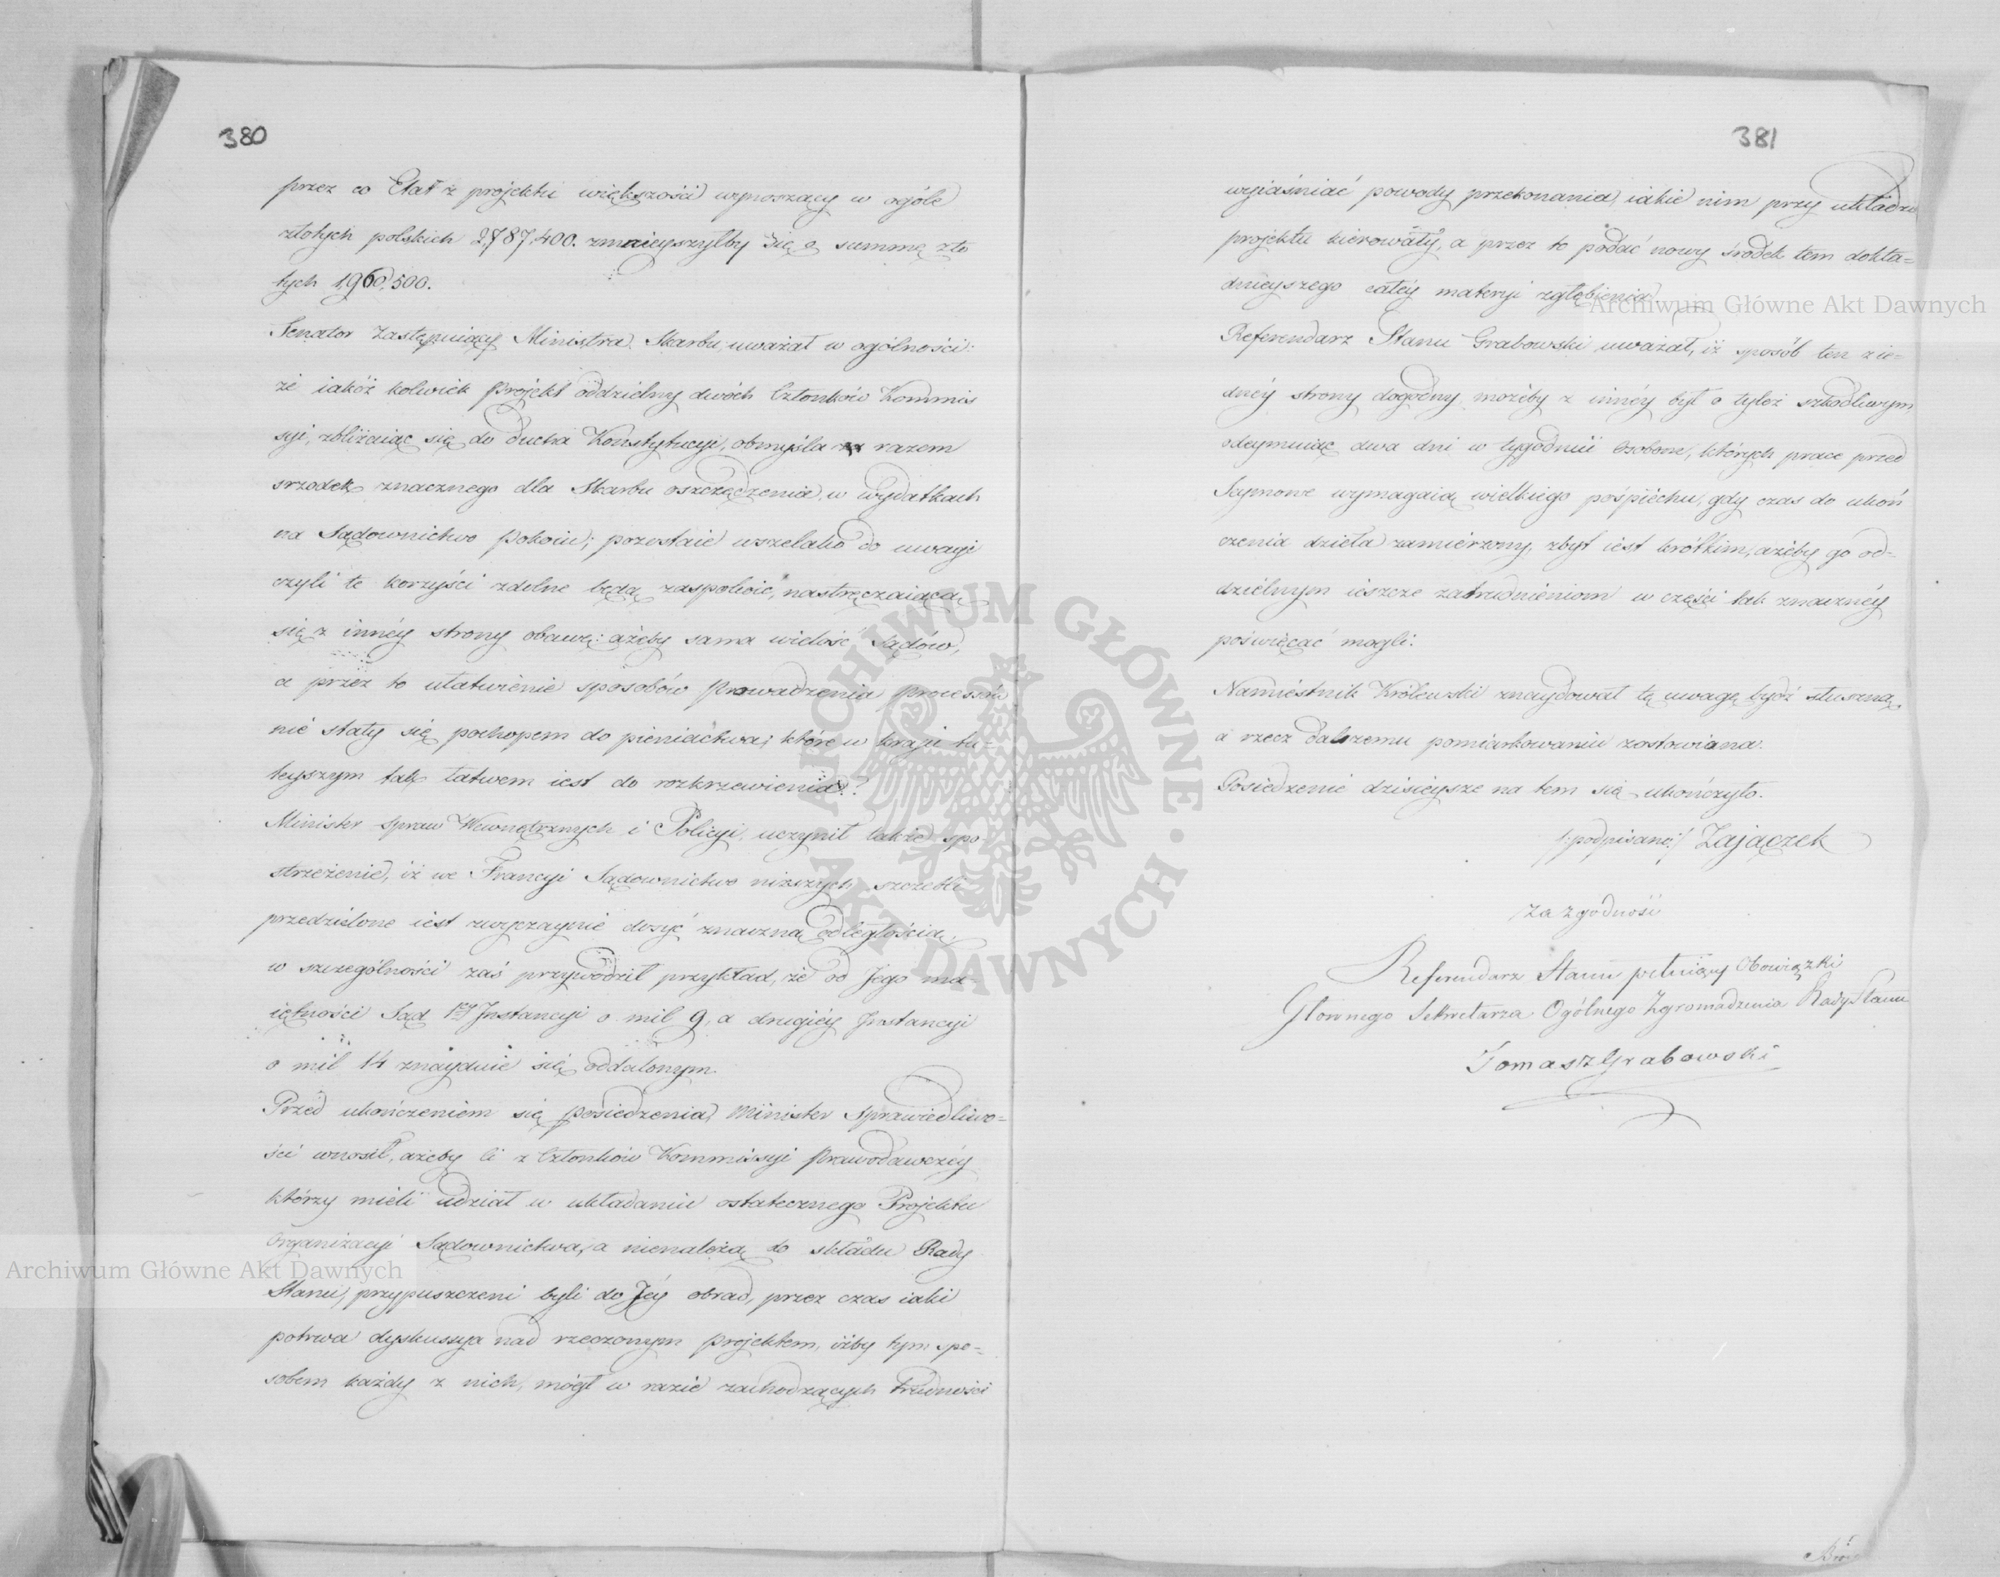 380
przez co Etat z projektu większości wynoszący w ogóle
złotych polskich 2,787,400. zmnieyszyłby się o summę zło
tych 1,960,500.
Senator Zastępuiący Ministra Skarbu, uważał w ogólności:
że iakóż kolwiek Projekt oddzielny dwóch Członków Kommis
syi, zbliżaiąc się do ducha Konstytucyi, obmyśla razem
srzodek znacznego dla Skarbu oszczędzenia w wydatkach
na Sądownictwo Pokoiu; pozostaie wszelako do uwagi
czyli te korzyści zdolne będą zaspokoić, nastręczaiącą
się z innéy strony obawę: ażeby sama wielość Sądów,
a przez to ułatwienie sposobów Prowadzenia processu
nie stały się pochopem do pieniactwa; które w kraju tu-
teyszym tak łatwem iest do rozkrzewienia?
Minister Spraw Wewnętrznych i Policyi uczynił także spo-
strzeżenie, iż we Francyi Sądownictwo niższych szczebli
przedzielone iest zwyczaynie dosyć znaczną odległością,
w szczególności zaś przywodził przykład, że od Jego ma-
iętności Sąd 1ey Jnstancyi o mil 9, a drugiéy Jnstancyi
o mil 14 znayduie się oddalonym.
Przed ukończeniem się posiedzenia, Minister Sprawiedliwo-
ści wnosił, ażeby ci z Członków Kommissyi Prawodawczéy
którzy mieli udział w układaniu ostatecznego Projektu
Organizacyi Sądownictwa, a nienależą do składu Rady
Stanu, przypuszczeni byli do Jéy obrad, przez czas iaki
potrwa dyskussya nad rzeczonym Projektem, iżby tym spo-
sobem każdy z nich, mógł w razie zachodzących trudności
381
wyiaśniać powody przekonania, iakie nim przy układzie
projektu kierowały, a przez to podać nowy środek tem dokła-
dnieyszego całéy materyi zgłębienia.
Referendarz Stanu Grabowski uważał, iż sposób ten z ie-
dnéy strony dogodny, możeby z innéy był o tyleż szkodliwym
odeymuiąc dwa dni w tygodniu osobom, których prace przed
Seymowe wymagaią wielkiego pośpiechu, gdy czas do ukoń
czenia dzieła zamierzony, zbyt iest krótkim, ażeby go od-
dzielnym ieszcze zatrudnieniom w części tak znacznéy
poświęcać mogli:
Namiéstnik Królewski znaydował tę uwagę bydź słuszną,
a rzecz dalszemu pomiarkowaniu zostawiona.
Posiedzenie dzisieysze na tem się ukończyło.
/:podpisano:/ Zajączek
Za zgodność
Referendarz Stanu pełniący Obowiązki
Głównego Sekretarza Ogólnego Zgromadzenia Rady Stanu
Tomasz Grabowski
Archiwum Główne Akt Dawnych
Archiwum Główne Akt Dawnych
ARCHIWUM GŁÓWNE · AKT DAWNYCH ·